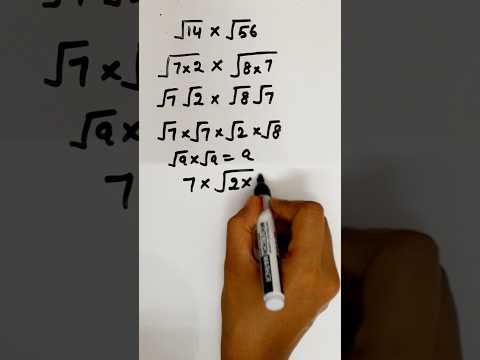 √14 × √56
√7×2 × √8×7
√7 √2 × √8 √7
√7 × √7 × √2 × √8
√a × √a = a
7 × √2×